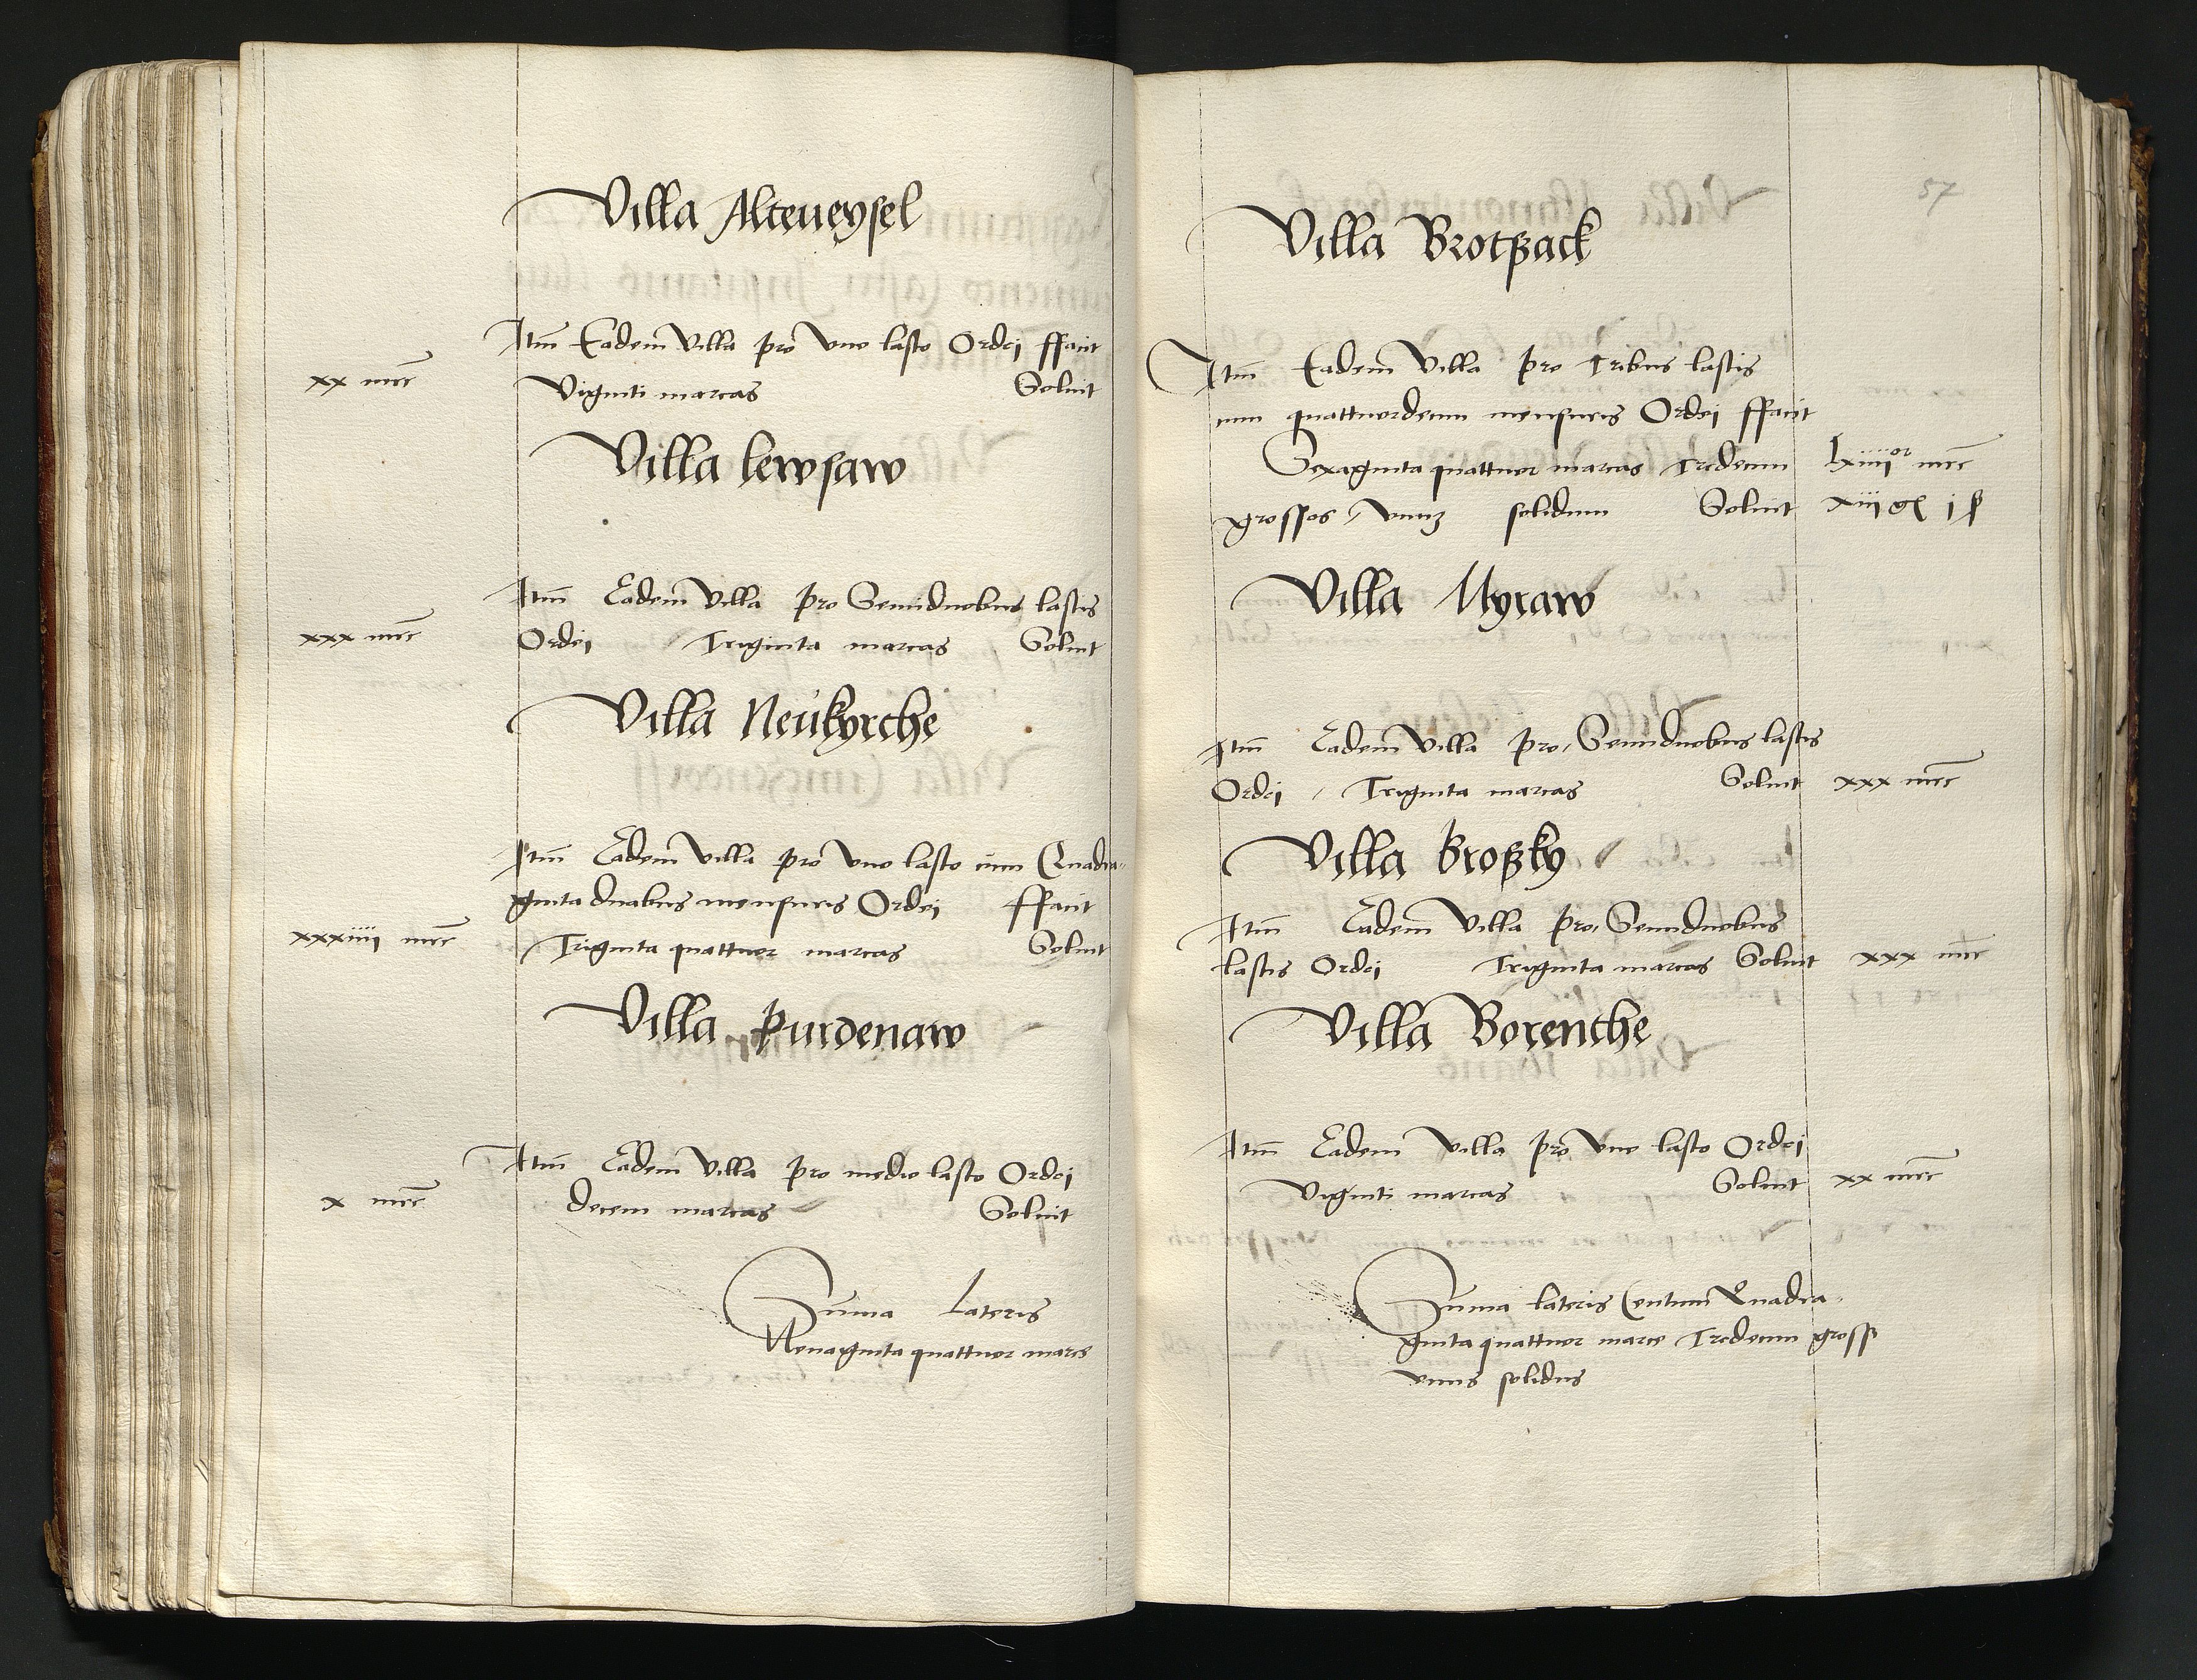 Villa Alteneysel
Itm̄ Eadem Villa pro Vno lasto Ordej ffaciūt
xx mrc̄ Viginti marcas Soluit
Villa lewsaw
Itm̄ Eadem Villa pro Semiduobus lastis
xxx mrc̄ Ordej Triginta marcas Soluit
Villa Neukyrche
Itm̄ Eadem Villa pro Vno lasto cum Quadra-
ginta duabus mensuris Ordej ffaciūt
xxxiiij mrc̄ Triginta quattuor marcas Soluit
Villa Purdenaw
Itm̄ Eadem Villa pro medio lasto Ordej
x mrc̄ decem marcas Soluit
Summa Lateris
Nonaginta quattuor marce
57
Villa Brotsack
Itm̄ Eadem Villa pro Tribus lastis
cum quattuordecim mensuris Ordej ffaciūt
Sexaginta quattuor marcas Tredecim lxiiijor mrc̄
grossos, vnuȝ solidum Soluit xiij gς j ß
Villa Myraw
Itm̄ Eadem Villa pro Semiduobus lastis
Ordej Triginta marcas Soluit xxx mrc̄
Villa Broßky
Itm̄ Eadem Villa pro Semiduobus
lastis Ordej Triginta marcas Soluit xxx mrc̄
Villa Borenthe
Itm̄ Eadem Villa pro Vno lasto Ordej
Viginti marcas Soluit xx mrc̄
Summa lateris Centum Quadra-
ginta quattuor marce Tredecim gross
vnus solidus